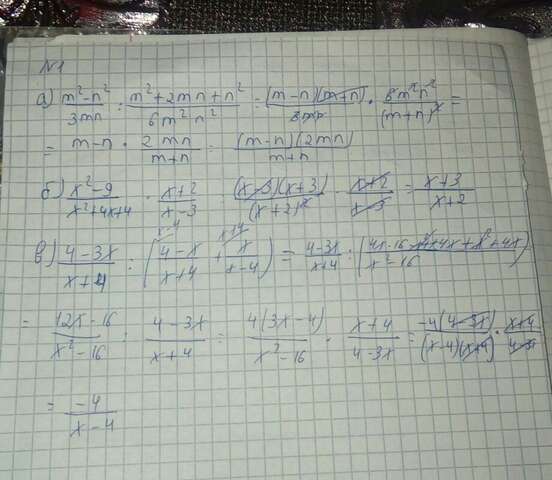 N1
а) (m²-n²)/(3mn) : (m²+2mn+n²)/(6m²n²) = ((m-n)(m+n))/(3mn) · (6m²n²)/((m+n)²) =
= m-n · (2mn)/(m+n) = ((m-n)(2mn))/(m+n)
б) (x²-9)/(x²+4x+4) · (x+2)/(x-3) = ((x-3)(x+3))/((x+2)²) · (x+2)/(x-3) = (x+3)/(x+2)
в) (4-3x)/(x+4) : ((4-x)/(x+4) + x/(x-4)) = (4-3x)/(x+4) : ((4x-16-x²+4x+x²+4x)/(x²-16))
= (12x-16)/(x²-16) : (4-3x)/(x+4) = (4(3x-4))/(x²-16) · (x+4)/(4-3x) = (-4(4-3x))/((x-4)(x+4)) · (x+4)/(4-3x)
= (-4)/(x-4)